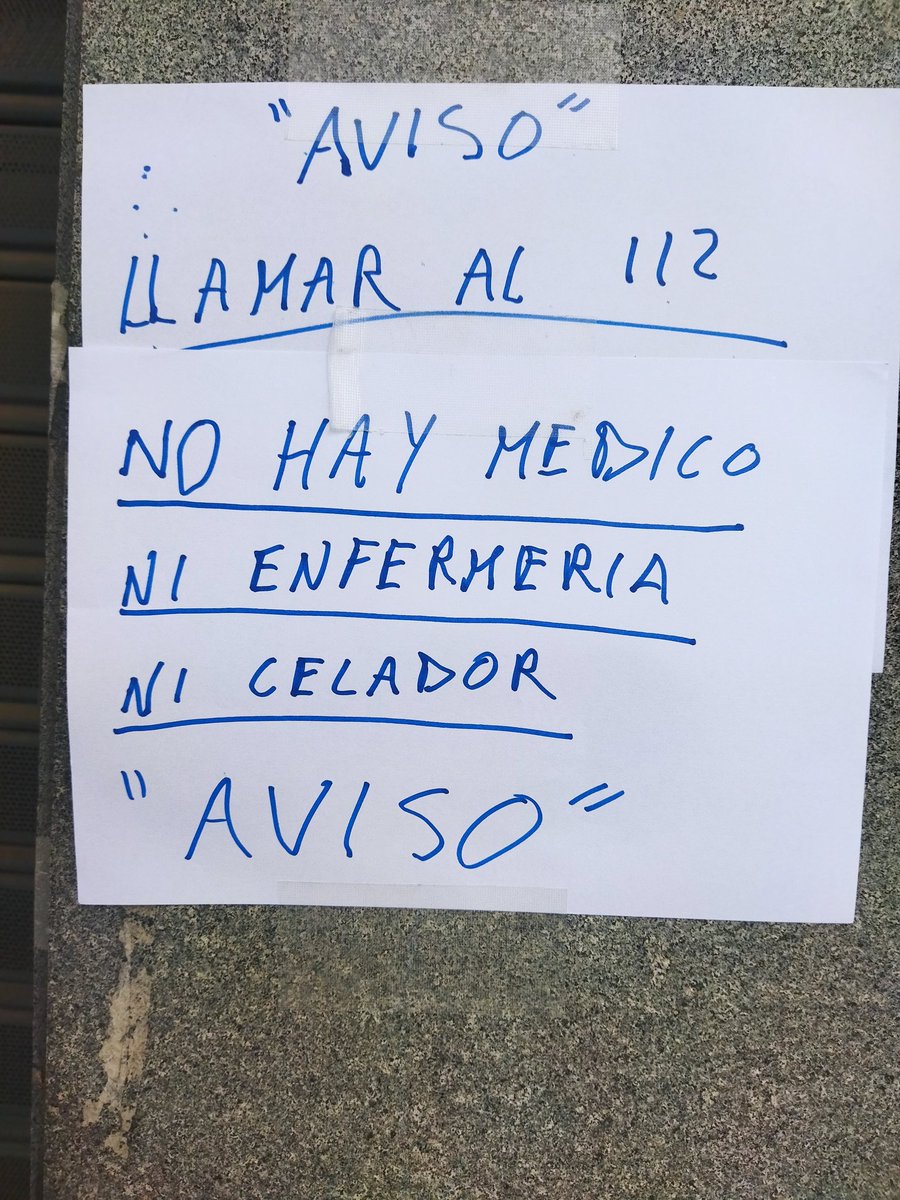 "AVISO"
LLAMAR AL 112
NO HAY MEDICO
NI ENFERMERIA
NI CELADOR
"AVISO"